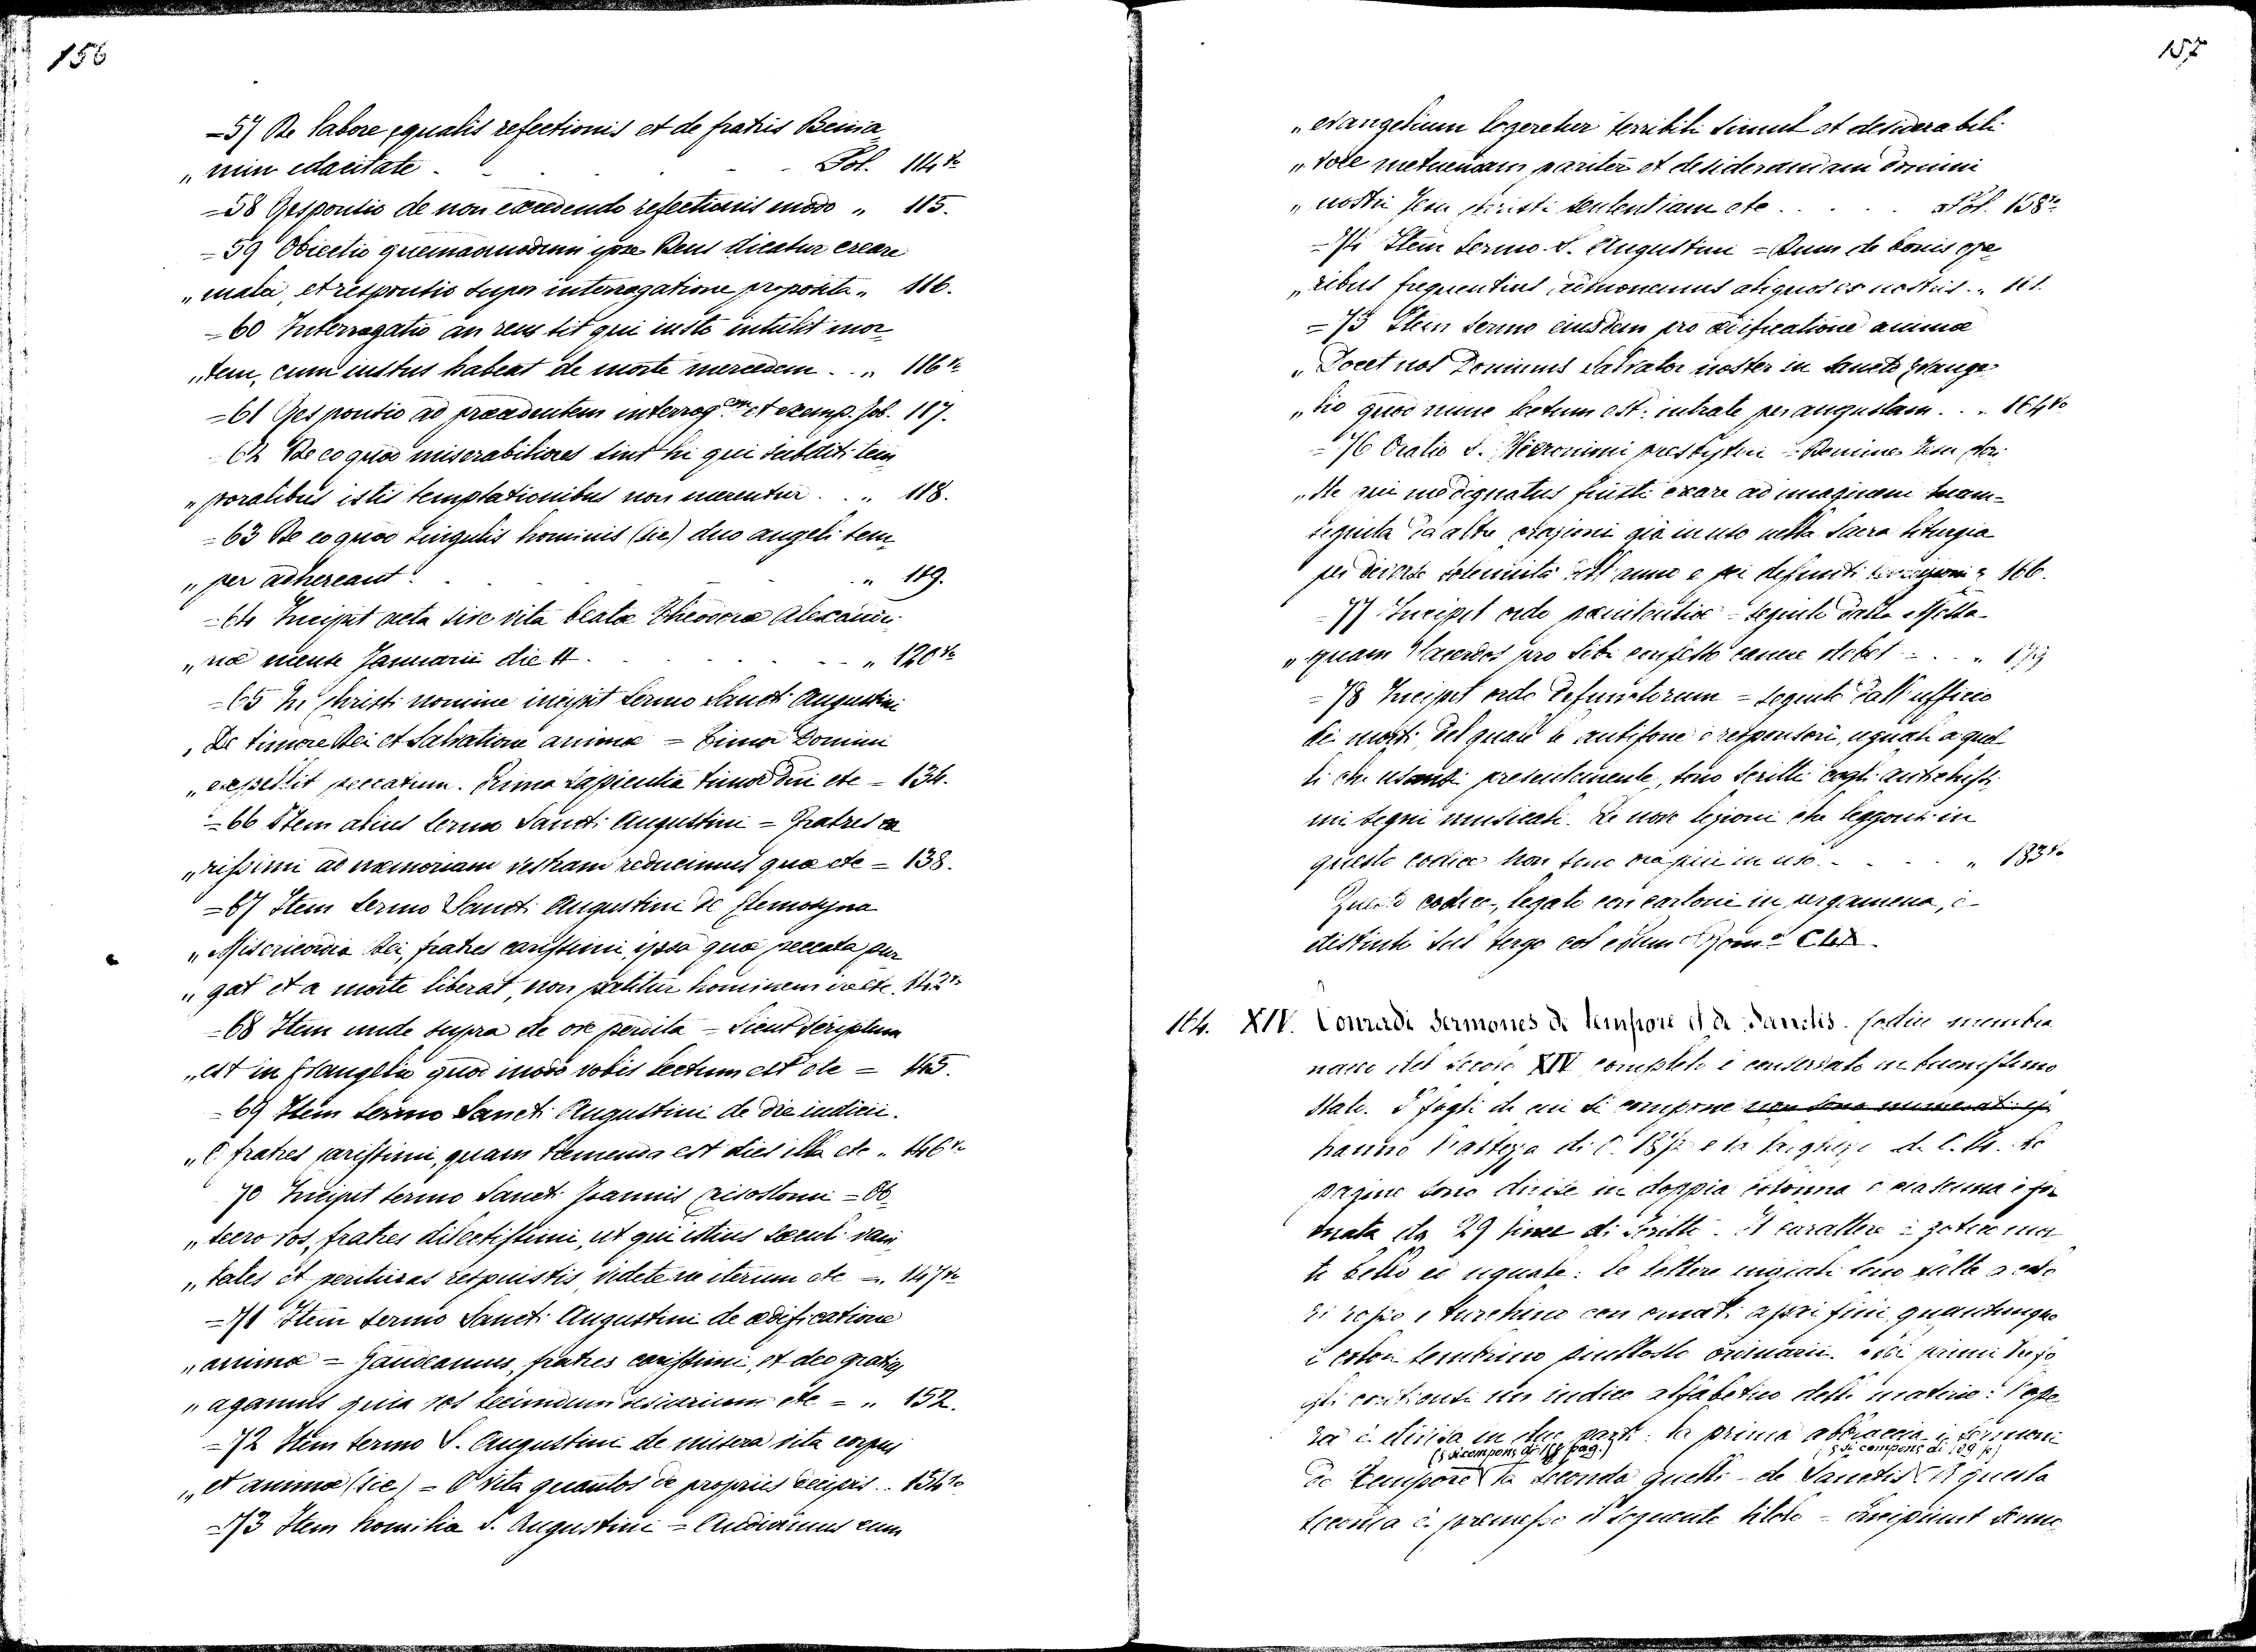 156
=57 De labore equalis refectionis et de fratris Benia=
„min edacitate . . . Fol. 114 to
=58 Responsio de non excedendo refectionis modo „ 115.
=59 Obiectio quemadmodum ipse Deus dicatur creare
„mala, et responsio super interrogatione proposita „ 116.
=60 Interrogatio an reus sit qui iusto intulit mor=
„tem, cum iustus habeat de morte mercedem . . „ 116 to
=61 Responsio ad precedentem interrog.em et exemp. Job. 117.
62 De eo quod miserabiliores sint hi qui subditi tem
„poralibus istis temptationibus non merentur . . „ 118.
=63 De eo quod singulis hominis (sic) duo angeli sem=
„per adhereant . . . „ 119.
=64 Incipit acta sive vita beatæ Theodoræ Alexandri=
„næ mense Januarii die 11 . . . „ 120 to
=65 In Christi nomine incipit sermo Sancti Augustini
„De timore Dei et Salvatione animæ = Timor Domini
„expellit peccatum. Prima sapientia timor Dni etc = 134.
=66 Item alius sermo Sancti Augustini = Fratres ca
„rissimi ad memoriam vestram reducimus quæ etc = 138.
=67 Item sermo Sancti Augustini de Elemosyna
„Misericordia Dei, fratres carissimi, ipsa quæ peccata pur
„gat et a morte liberat, non patitur hominem ire etc. 142 to
=68 Item unde supra de ove perdita = Sicut scriptum
„est in Evangelio quod modo vobis lectum est etc = 145.
=69 Item sermo Sancti Augustini de die iudicii.
„O fratres carissimi, quam tremenda est dies illa etc „ 146 to
70 Incipit sermo Sancti Joannis Crisostomi = Ob=
„secro vos, fratres dilectissimi, ut qui istius sæculi vani
„tates et perituras respuistis, videte ne iterum etc = „ 147 to
=71 Item sermo Sancti Augustini de ædificatione
„animæ = Gaudeamus, fratres carissimi, et deo gratias
„agamus quia vos secundum desiderium etc = „ 152.
=72 Item sermo S. Augustini de misera vita corpus
„et animæ (sic) = O vita quantos de propriis decipis . . 154 to
=73 Item homilia S. Augustini = Audivimus cum
157
„evangelium legeretur terribili simul et desiderabili
„voce metuendam pariter et desiderandam domini
„nostri Jesu Christi sententiam etc . . . . Fol. 158 to
=74 Item sermo S. Augustini = Dum de bonis ope=
„ribus frequentius admonemus aliquos ex nostris . „ 161.
=75 Item sermo eiusdem pro ædificatione animæ
„Docet nos Dominus Salvator noster in Sancto Evange=
„lio quod nunc lectum est: intrate per angustam . . . 164 to
=76 Oratio S. Hieronimi presbyteri = Domine Jesu Chri=
„ste qui me dignatus fuisti creare ad imaginem tuam =
seguita da altre orazioni già in uso nella Sacra liturgia
per diverse solennità dell'anno e pei defunti „ 166.
=77 Incipit ordo pœnitentiæ = seguito dalla Messa =
„quam Sacerdos pro sibi confesso canere debet = . . „
=78 Incipit ordo Defunctorum = seguito dall'ufficio
dei morti del quale le antifone e responsori, uguali a quel
li che usansi presentemente, sono scritti cogli antichissi
mi segni musicali. Le nove lezioni che leggonsi in
questo codice non sono ora più in uso . . . . „ 183 to
Questo codice, legato con cartoni in pergamena, è
distinto sul tergo col
164. XIV. Conradi Sermones de tempore et de Sanctis. Codice membra
naceo del secolo XIV completo e conservato in buonissimo
stato. I fogli di cui si compone non sono numerati e
hanno l'altezza di C. 18 1/2 e la larghezza di C. Le
pagine sono divise in doppia colonna e ciascuna è for
mata da 29 linee di scritto. Il carattere è gotico mol
to bello ed uguale: le lettere iniziali sono fatte a colo
ri rosso e turchino con ornati assai fini quantunque
i colori sembrino piuttosto ordinarii. I primi tre fo
gli contengono un indice alfabetico delle materie: l'ope
ra è divisa in due parti: la prima abbraccia i sermoni
(e si compone di pag.) (e si compone di 109 p)
de tempore la seconda quelli = de Sanctis. A questa
seconda è premesso il seguente titolo = Incipiunt sermo